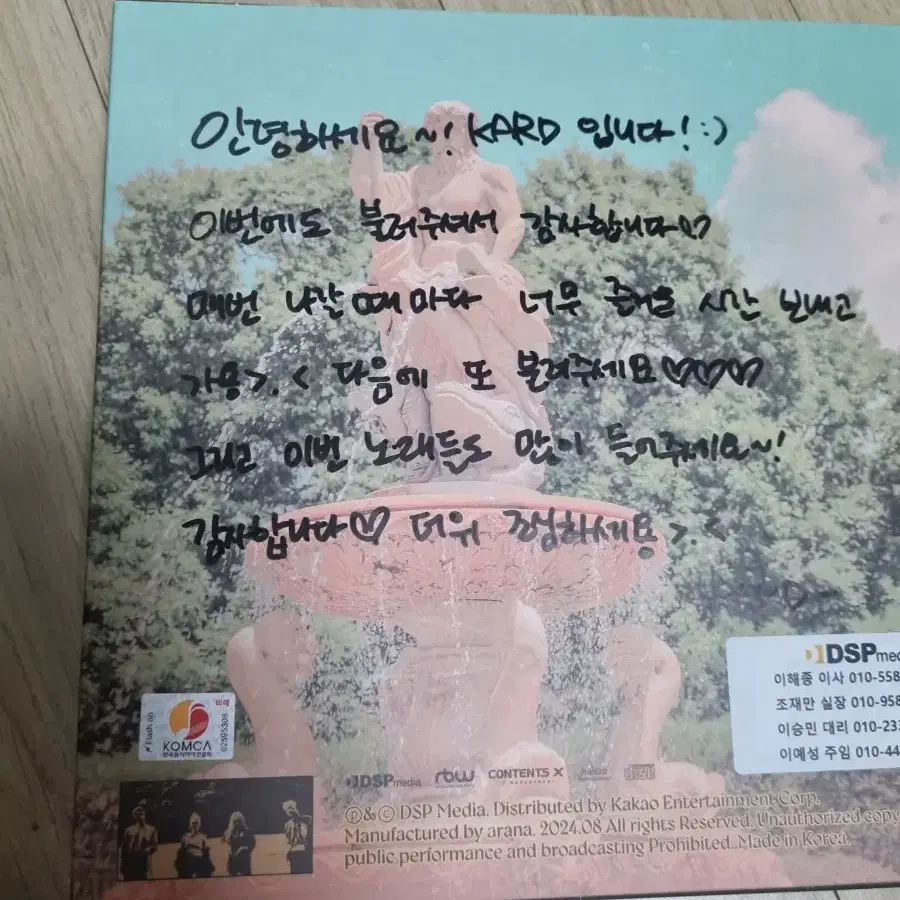 안녕하세요~! KARD 입니다! :)
이번에도 불러주셔서 감사합니다♡
매번 나갈 때마다 너무 즐거운 시간 보내고
가용>.< 다음에 또 불러주세요♡♡♡
그리고 이번 노래들도 많이 들어주세요~!
감사합니다♡ 더위 조심하세용>.<
DSPmedia
이해종 이사 010-558
조재만 실장 010-958
이승민 대리 010-233
이예성 주임 010-44
Flash on
비매
KOMCA
한국음악저작권협회
02595308
DSPmedia rbw CONTENTS X kakao disc
Ⓟ&© DSP Media. Distributed by Kakao Entertainment Corp.
Manufactured by arana. 2024.08 All rights Reserved. Unauthorized copy
public performance and broadcasting Prohibited. Made in Korea.